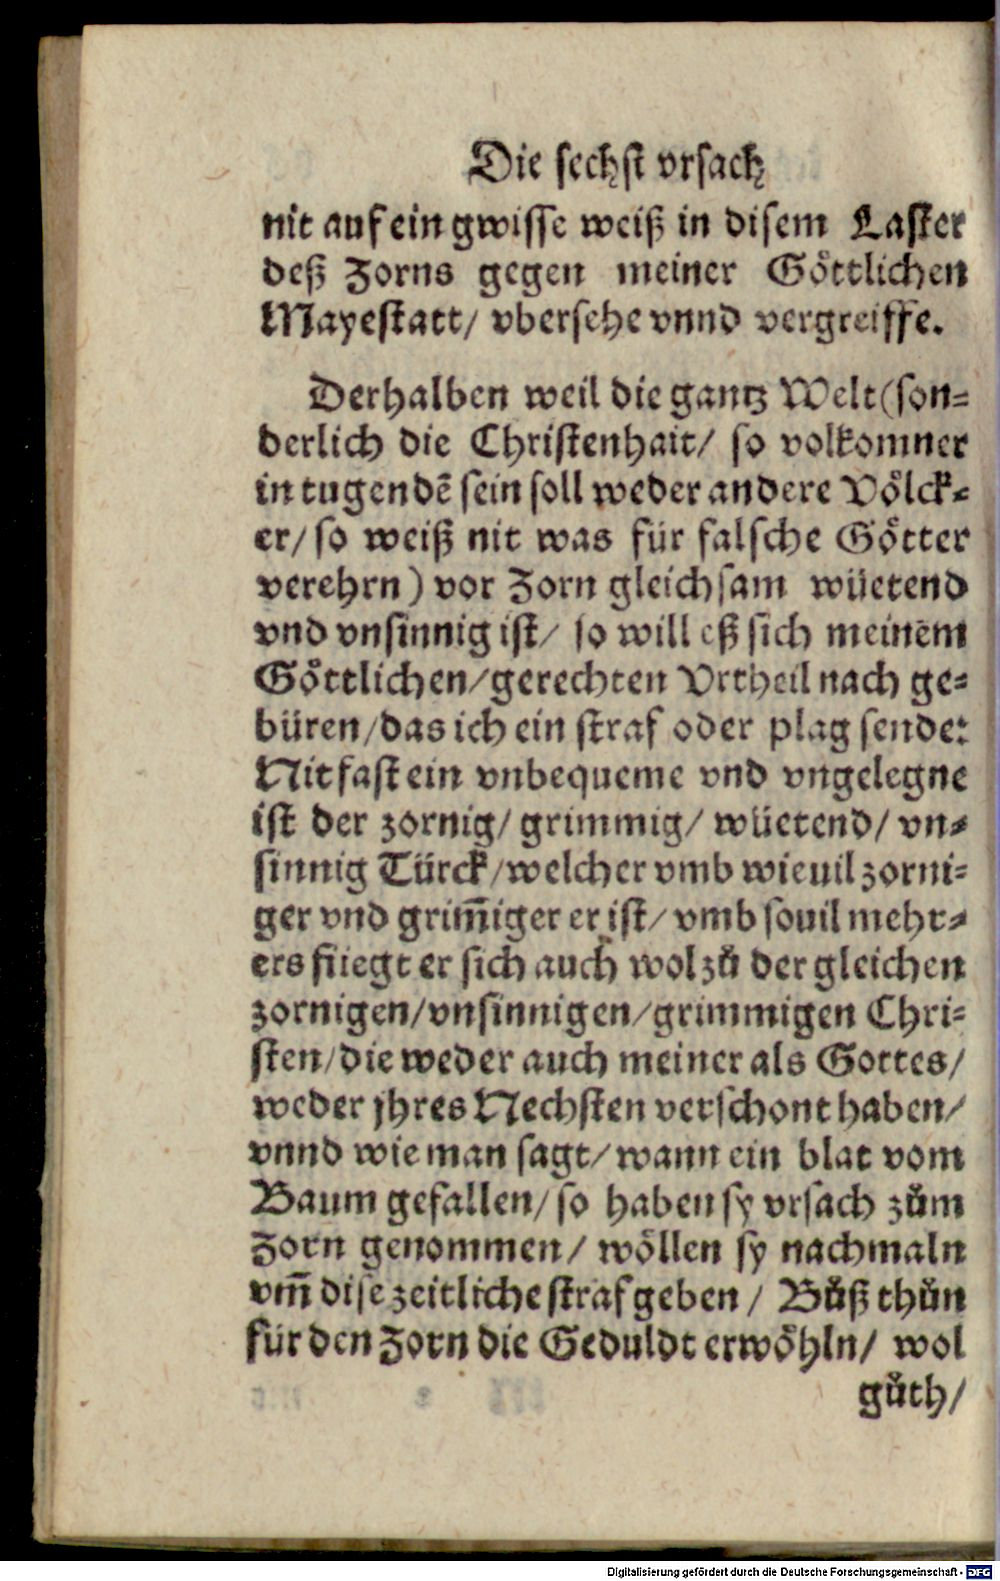 Die sechst vrsach
nit auf ein gwisse weiß in disem Laster
deß Zorns gegen meiner Göttlichen
Mayestatt/ vbersehe vnnd vergreiffe.
Derhalben weil die gantz Welt (son-
derlich die Christenhait/ so volkomner
in tugendē sein soll weder andere Völck-
er/ so weiß nit was für falsche Götter
verehrn) vor Zorn gleichsam wüetend
vnd vnsinnig ist/ so will eß sich meinem
Göttlichen/ gerechten Vrtheil nach ge-
büren/ das ich ein straf oder plag sende:
Nit fast ein vnbequeme vnd vngelegne
ist der zornig/ grimmig/ wüetend/ vn-
sinnig Türck/ welcher vmb wieuil zorni-
ger vnd grim̄iger er ist/ vmb souil mehr-
ers füegt er sich auch wol zů der gleichen
zornigen/ vnsinnigen/ grimmigen Chri-
sten/ die weder auch meiner als Gottes/
weder jhres Nechsten verschont haben/
vnnd wie man sagt/ wann ein blat vom
Baum gefallen/ so haben sy vrsach zům
Zorn genommen/ wöllen sy nachmaln
vm̄ dise zeitliche straf geben/ Bůß thůn
für den Zorn die Geduldt erwöhln/ wol
gůth/
Digitalisierung gefördert durch die Deutsche Forschungsgemeinschaft - DFG